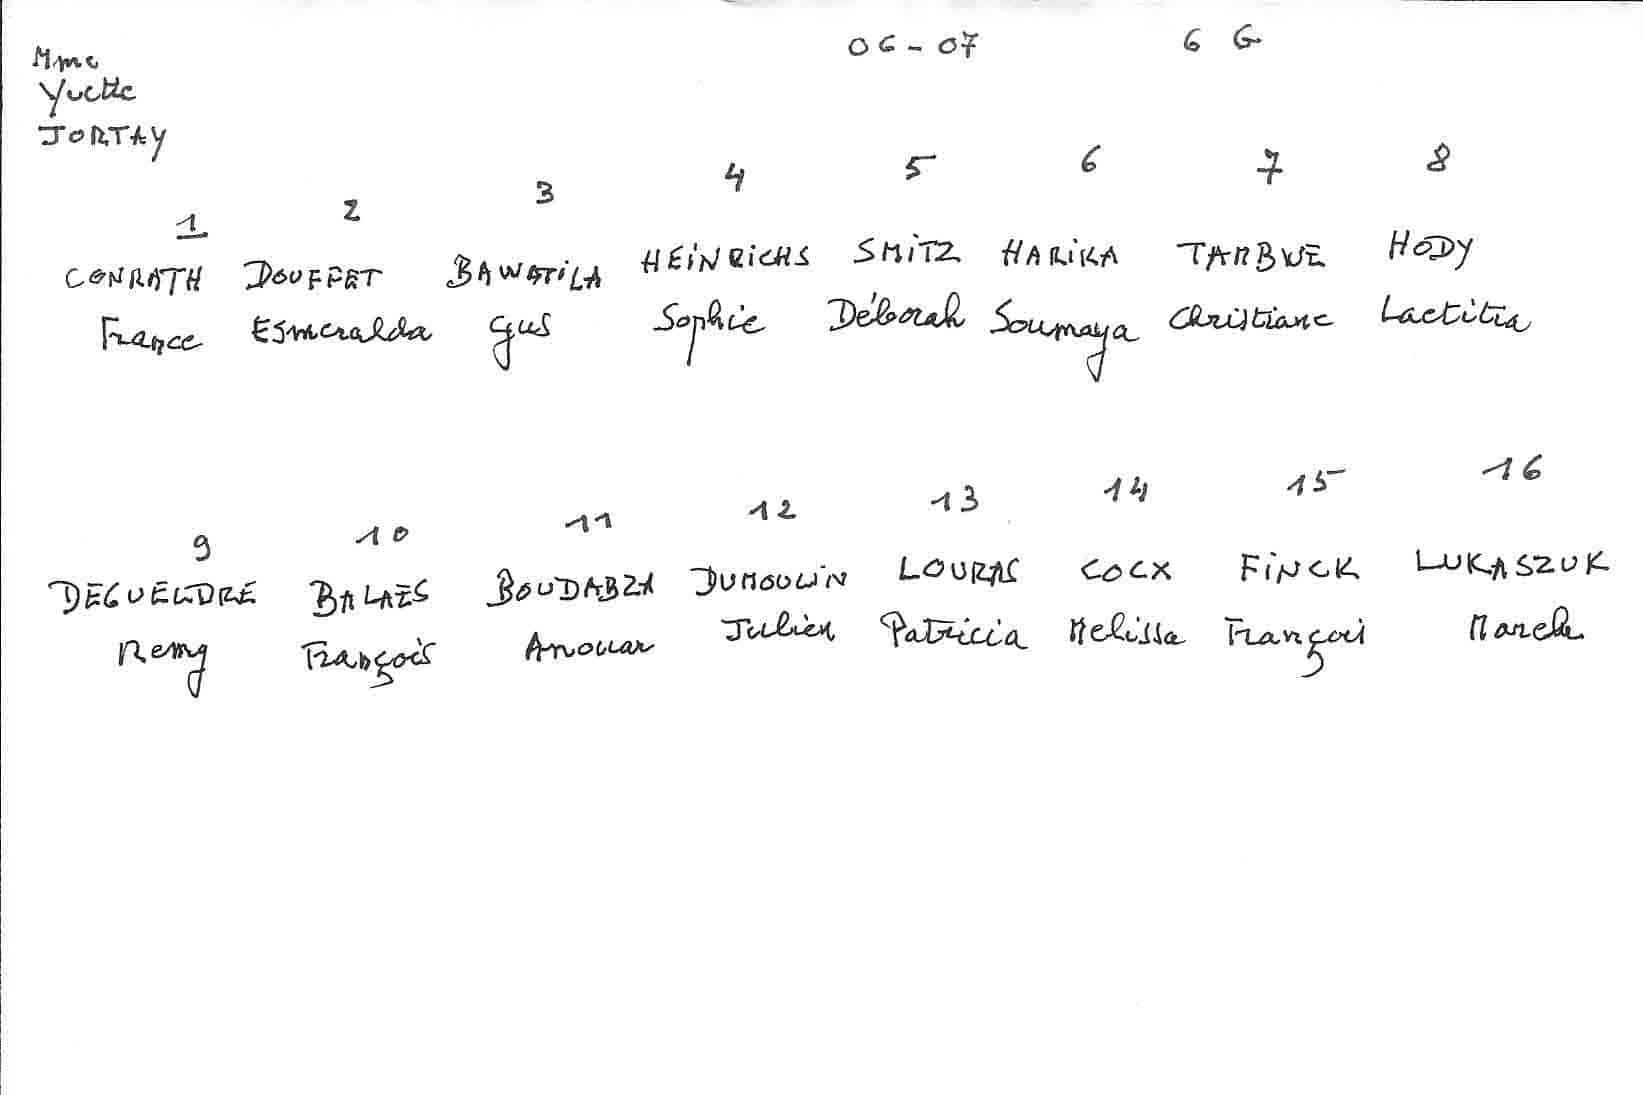 Mme
Yvette
JORTAY
06-07 6 G
1 2 3 4 5 6 7 8
CONRATH DOUFFET BAWETILA HEINRICHS SMITZ HARIKA TAMBWE HODY
France Esmeralda Gus Sophie Déborah Soumaya Christiane Laetitia
9 10 11 12 13 14 15 16
DEGUELDRE BALAES BOUDABZA DUMOULIN LOURAS COCX FINCK LUKASZUK
Remy François Anouar Julien Patricia Melissa François